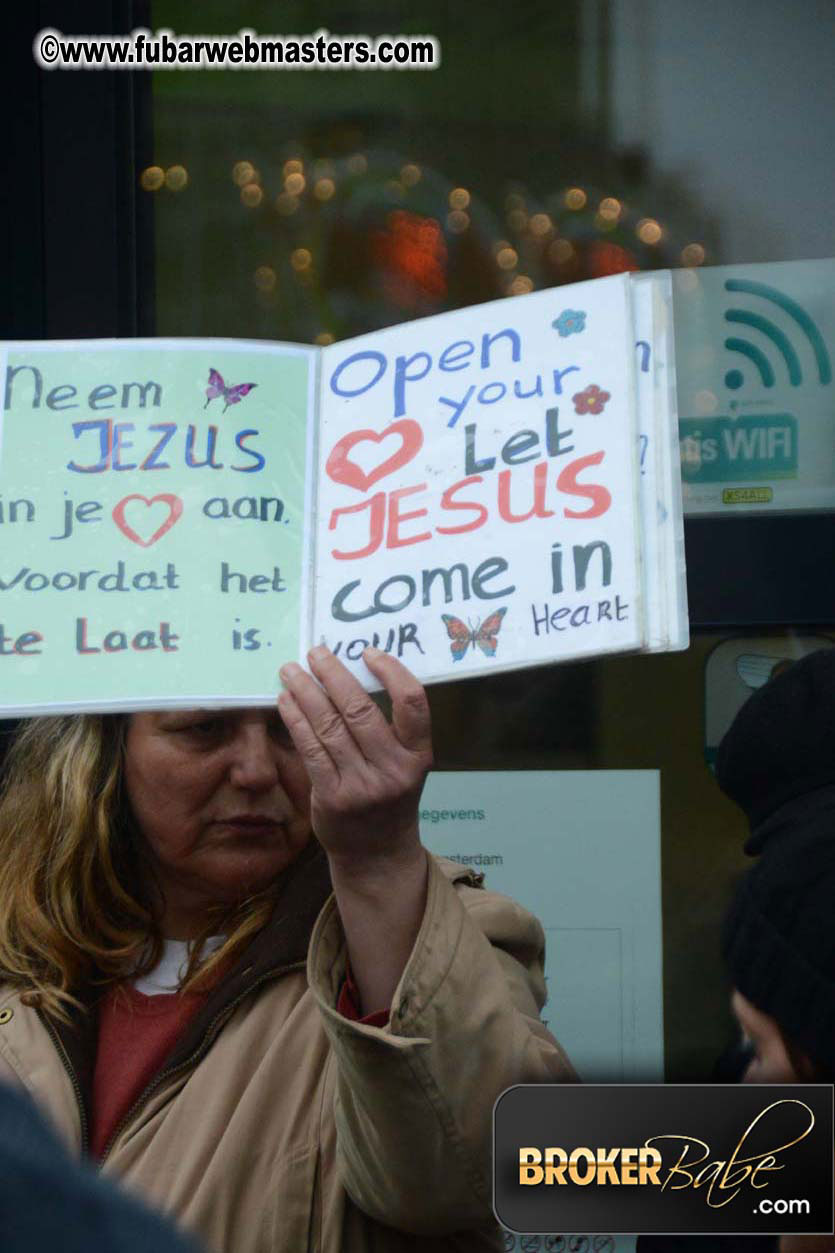 ©www.fubarwebmasters.com
Neem
JEZUS
in je aan.
voordat het
te Laat is.
Open
your
Let
JESUS
come in
YOUR HeaRt
tis WIFI
XS4ALL
egevens
sterdam
BROKERBabe
.com